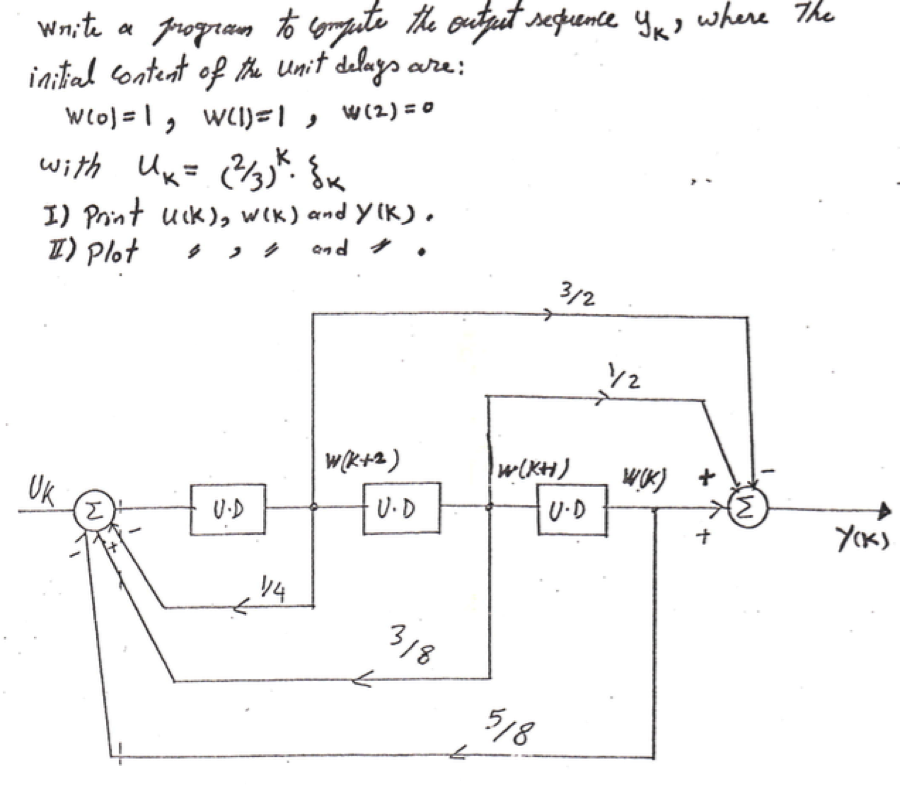 Write a program to compute the output sequence yₖ, where The
initial content of the unit delays are:
W(0)=1, W(1)=1, W(2)=0
with Uₖ = (2/3)ᵏ. ξₖ
I) Print U(K), W(K) and Y(K).
II) Plot 〃 , 〃 and 〃 .
3/2
1/2
W(K+2) W(K+1) W(K) + -
UK Σ U.D U.D U.D Σ
- + - + Y(K)
1/4
3/8
5/8